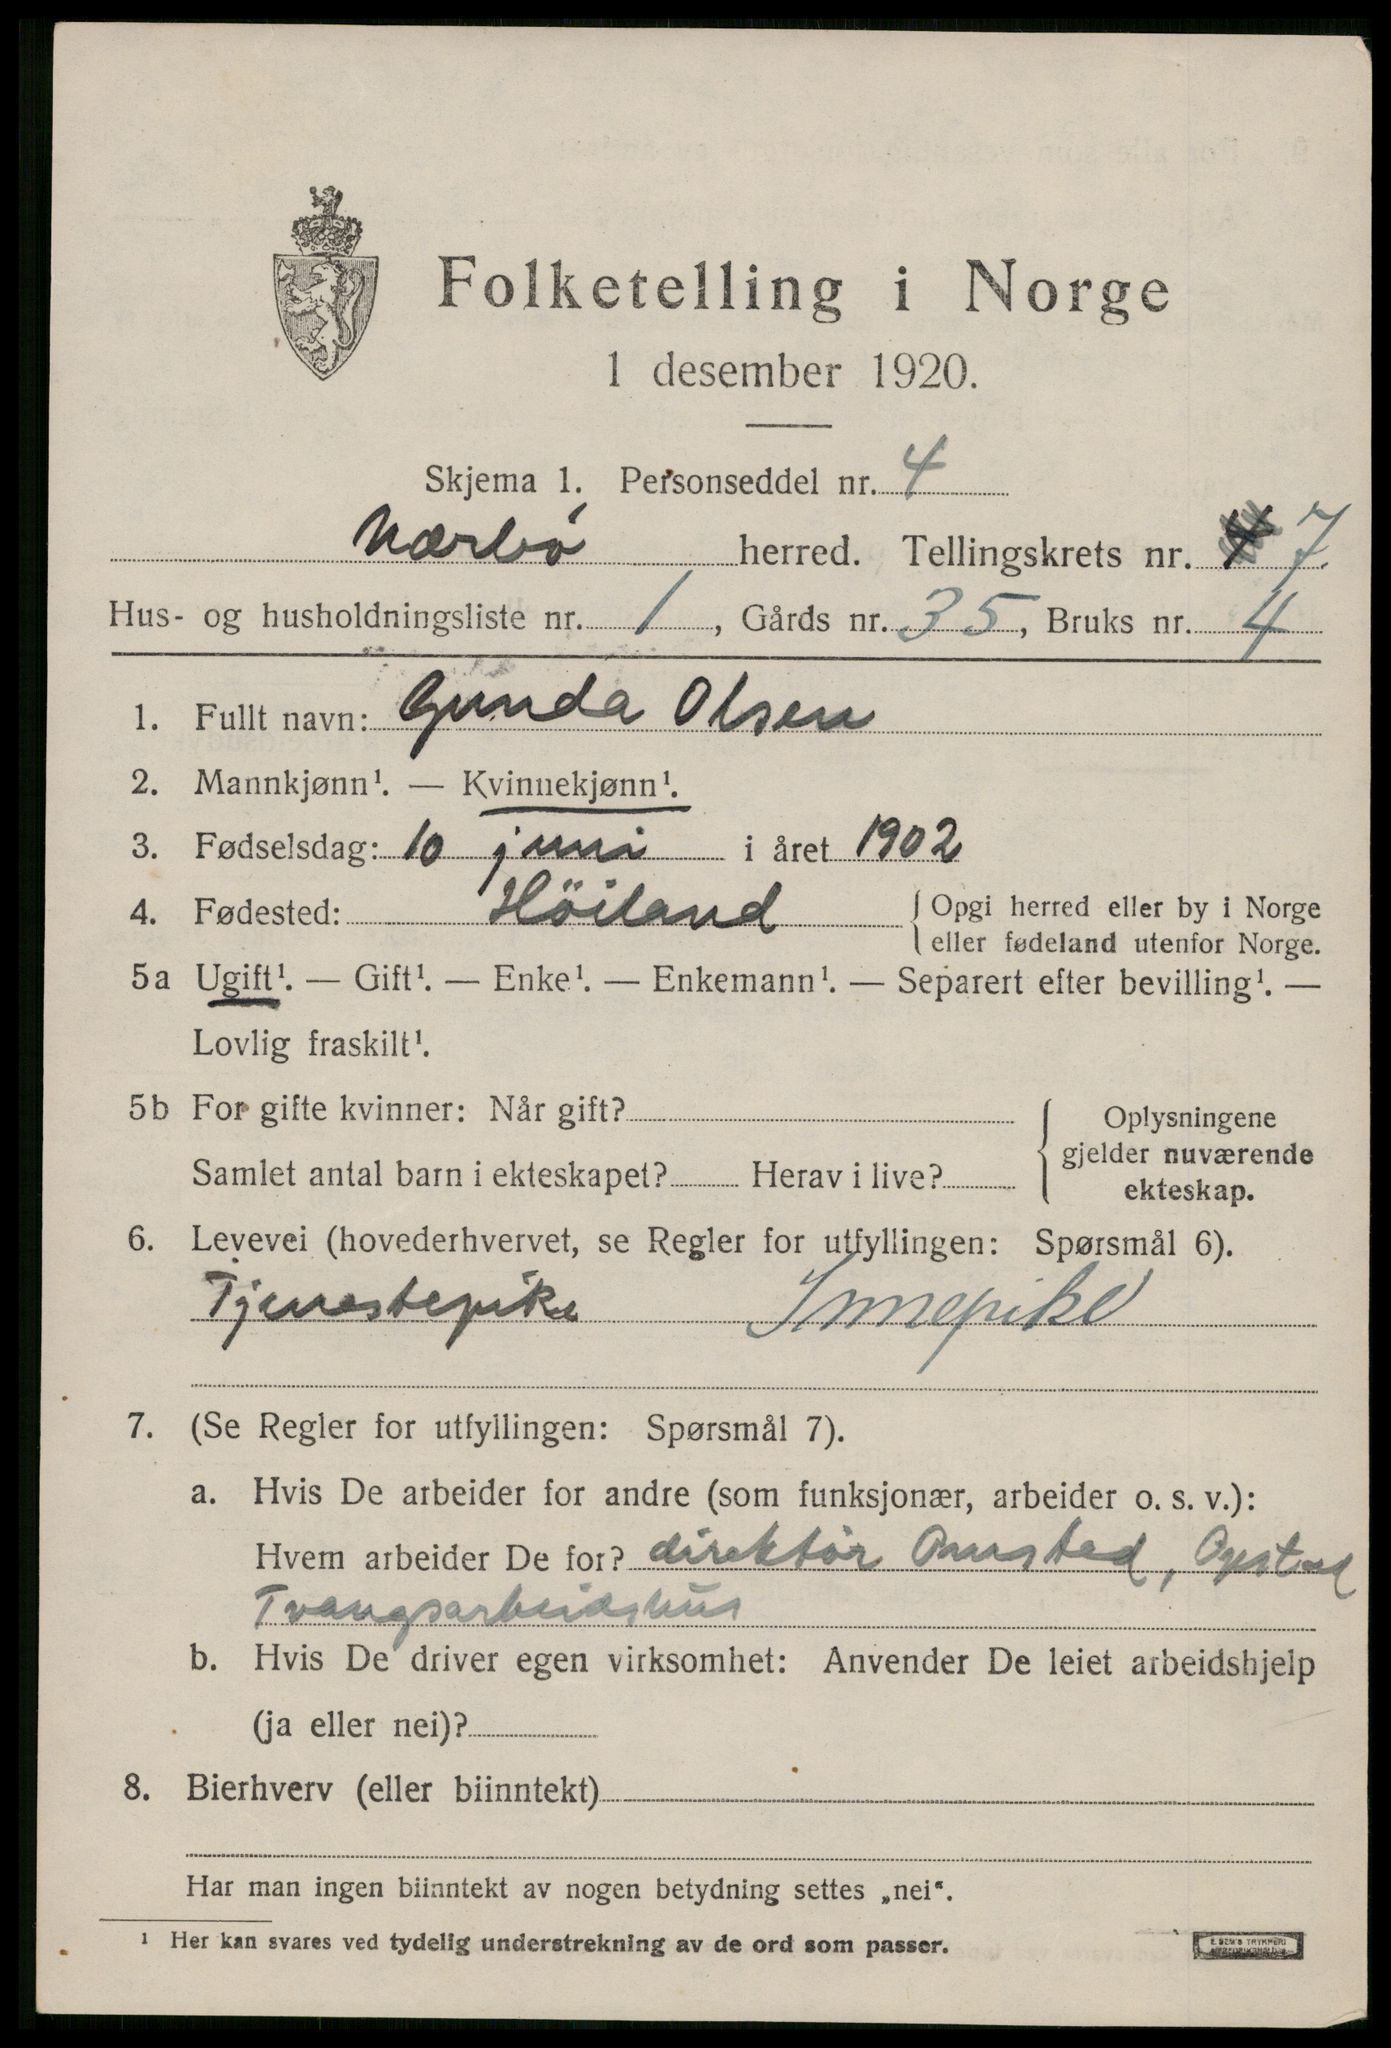 Folketelling i Norge
1 desember 1920.
Skjema 1. Personseddel nr. 4
Nærbö herred. Tellingskrets nr. 7.
Hus- og husholdningsliste nr. 1, Gårds nr. 35, Bruks nr. 4
1. Fullt navn: Gunda Olsen
2. Mannkjønn¹. — Kvinnekjønn¹.
3. Fødselsdag: 10 juni i året 1902
4. Fødested: Höiland { Opgi herred eller by i Norge
eller fødeland utenfor Norge.
5a Ugift¹. — Gift¹. — Enke¹. — Enkemann¹. — Separert efter bevilling¹. —
Lovlig fraskilt¹.
5b For gifte kvinner: Når gift? { Oplysningene
gjelder nuværende
Samlet antal barn i ekteskapet? Herav i live? ekteskap.
6. Levevei (hovederhvervet, se Regler for utfyllingen: Spørsmål 6).
Tjenestepike Innepike
7. (Se Regler for utfyllingen: Spørsmål 7).
a. Hvis De arbeider for andre (som funksjonær, arbeider o. s. v.):
Hvem arbeider De for? direktör Omsted, Opstad
Tvangsarbeidshus
b. Hvis De driver egen virksomhet: Anvender De leiet arbeidshjelp
(ja eller nei)?
8. Bierhverv (eller biinntekt)
Har man ingen biinntekt av nogen betydning settes „nei“.
¹ Her kan svares ved tydelig understrekning av de ord som passer.